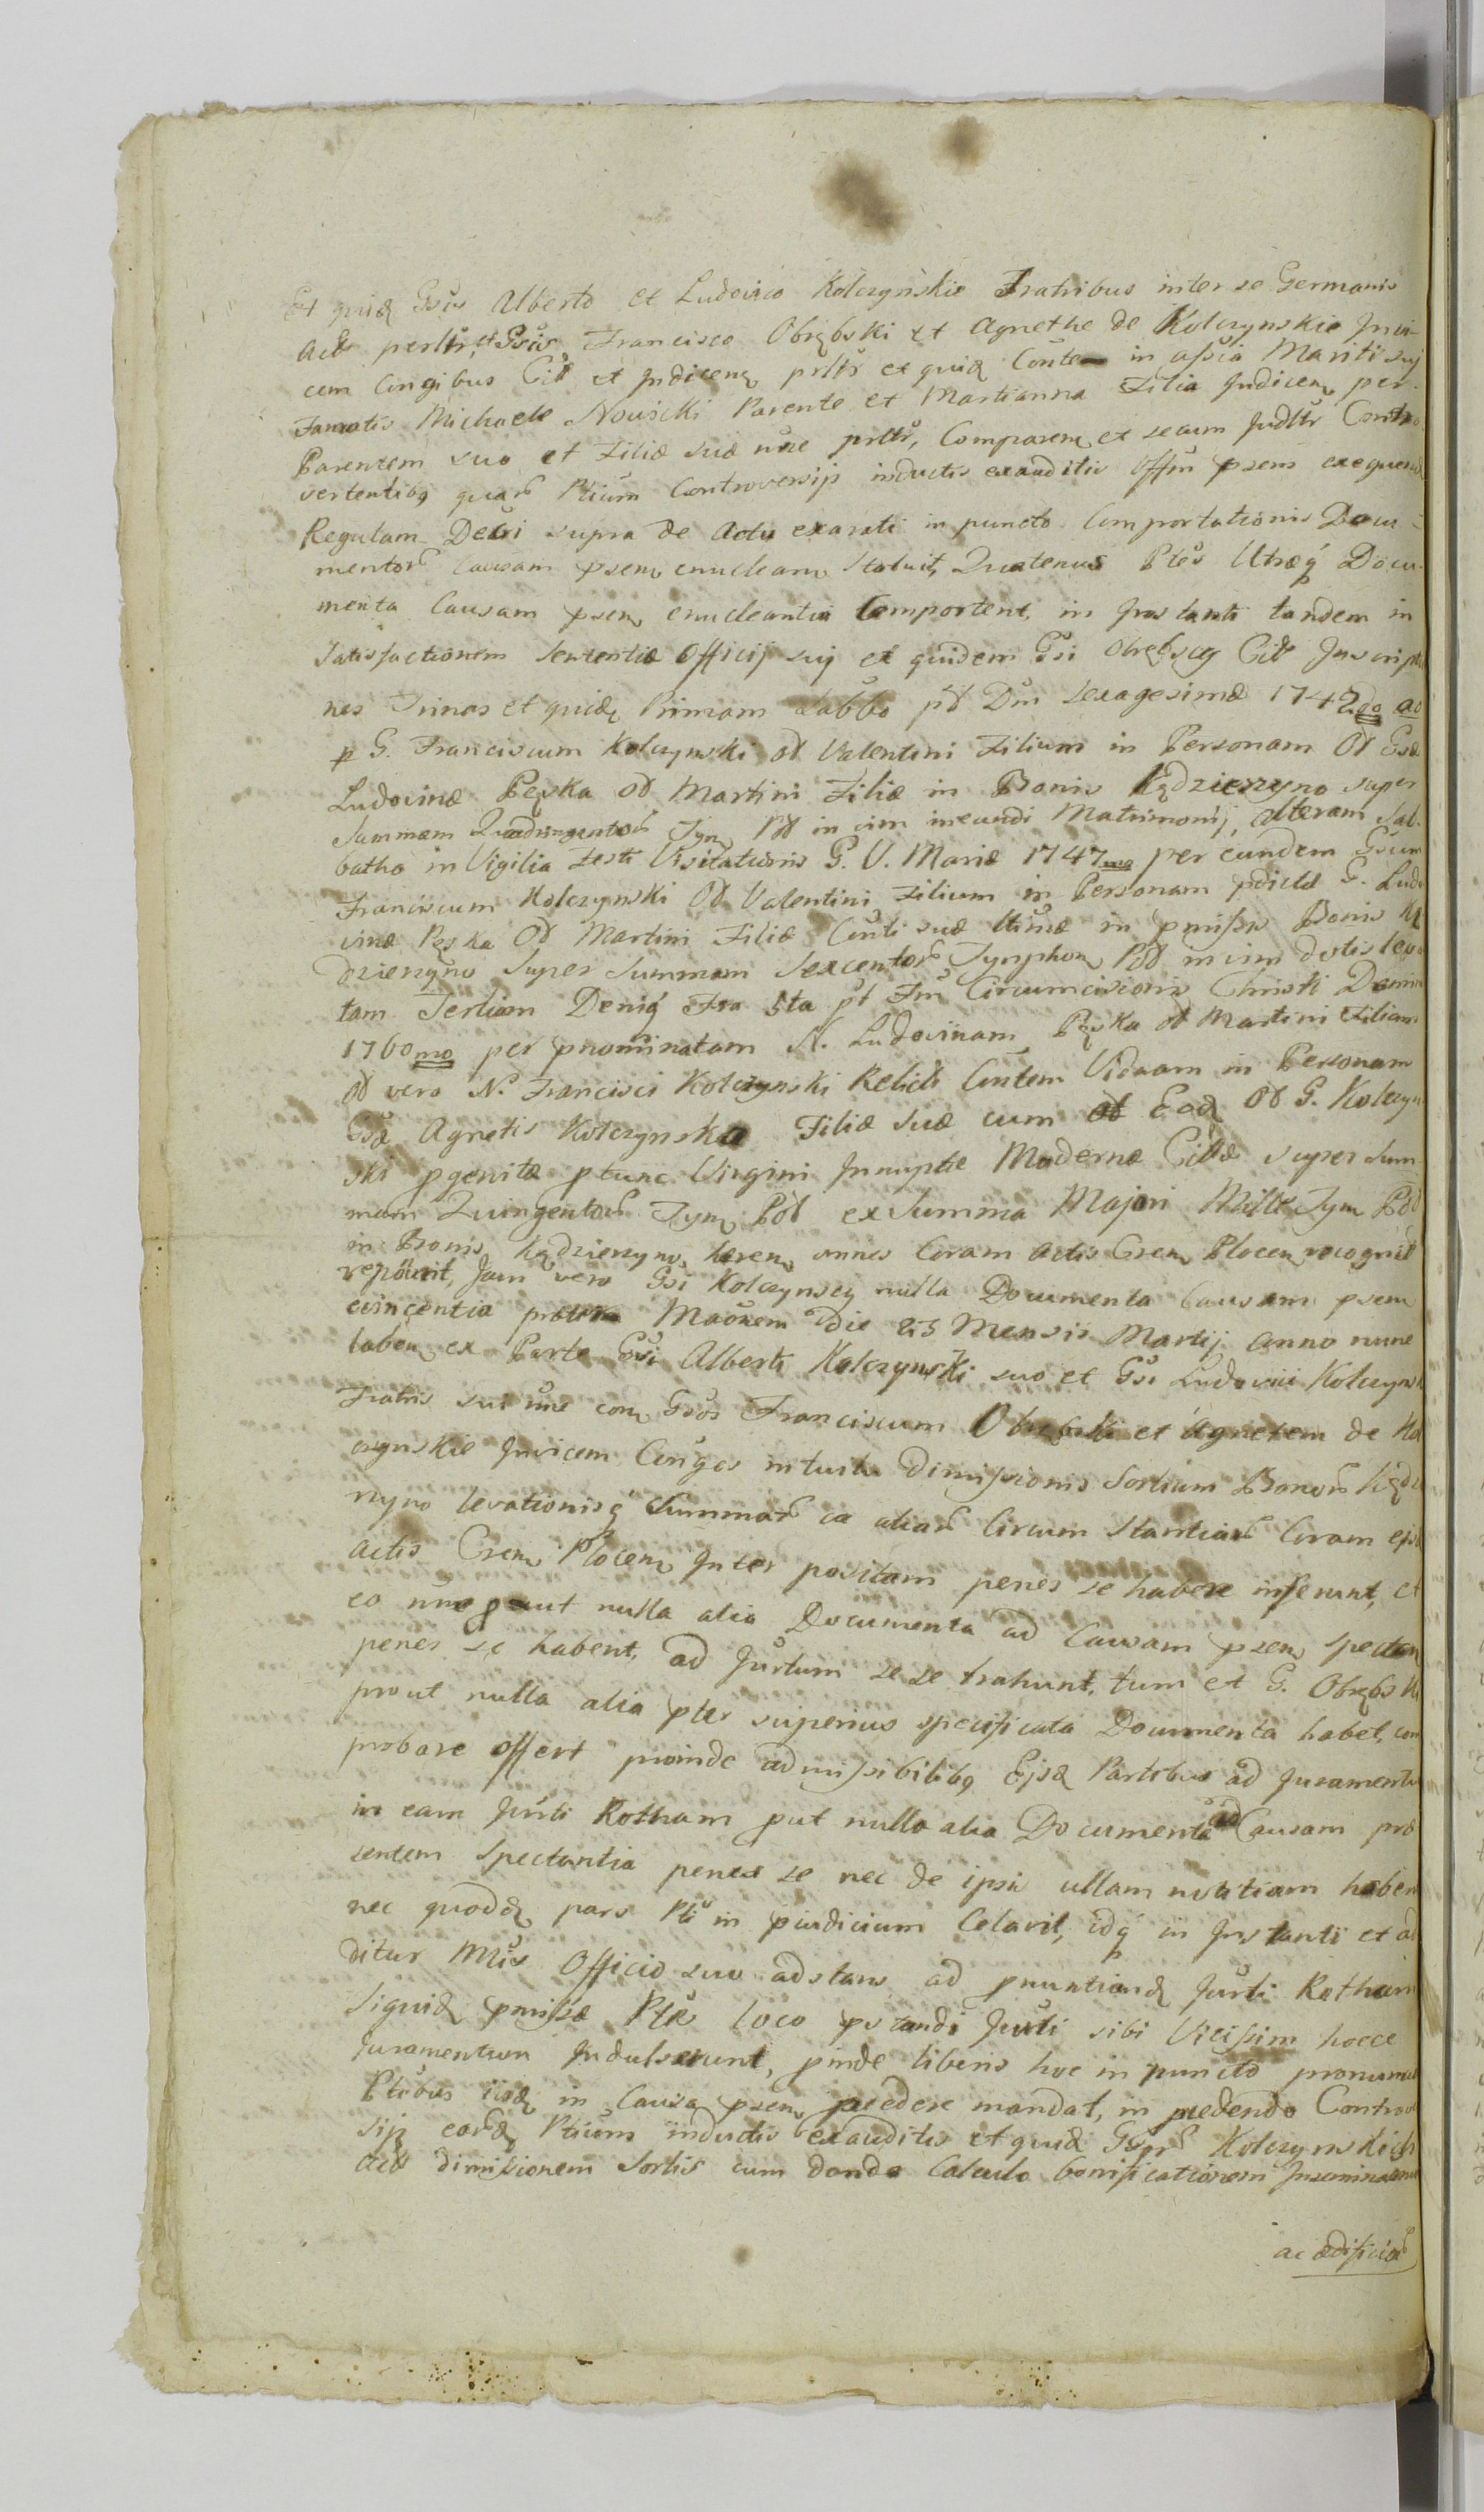 Et quidę Gsis Alberto et Ludovico Kolczynskie Fratribus inter se Germanis
Act. perltr, et Gsis Francisco Obrębski et Agnethe de Kolczynskie Invi-
cem Congibus Citt et Indicenę prltr et quidę Conte in assia Mariti sui
Famatis Michaele Nowicki Parente et Marianna Filia Indicenę per
Parentem suo et Filiæ suæ nne prltr, Comparenę et secum Judltr Contro
vertentibę quarū Ptium Controversijs inductis exauditis Offm psens exequendo
Regulam Decri supra de Actu exarati in puncto Comportationis Docu-
mentorū Causam psenę enucleanę Statuit, Quatenus Ptes Utræq Docu-
menta Causam psenę enucleantia Comportent, in Instanti tandem in
Satisfactionem Sententiæ Officij sui et quidem Gsi Obrębscy Citt Inscriptio
nes Trinas et quidę Primam Sabbo pt Dm Sexagesimæ 1742do ac
p G. Franciscum Kolczynski ot Valentini Filium in Personam Ot Gsæ
Ludovinæ Pęska ot Martini Filiæ in Bonis Kędzierzyno super
Summam Quadringentorū Tynę Ptt in vim ineundi Matrimonij, alteram Sab-
batho in Vigilia Festi Visitationis B. V. Mariæ 1747mo per eundem Gsum
Franciscum Kolczynski Ot Valentini Filium in Personam pdictæ G. Ludo
vinæ Pęska Ot Martini Filiæ Conti suæ ltimæ in pmissis Bonis Kę
dzierzyno Super Summam Sexcentorū Tynphonę Ptt in vim dotis leva
tam Tertiam Deniq Fra 5ta pt Fm Circumcisionis Christi Domini
1760mo per pnominatam N. Ludovinam Pęska ot Martini Filiam
ot vero N. Francisci Kolczynski Relicti Contem Viduam in Personam
Gsæ Agnetis Kolczynska Filiæ Suæ cum ot Eodę Ot G. Kolczyn
ski pgenitæ ptunc Virgini Innuptæ Modernæ Cittæ super Sum
mam Quingentorū Tynę Ptt ex Summa Majori Mille Tynę Ptt
in Bonis Kędzierzyno hærenę omnes Coram Actis Crenę Plocenę recognit
repōuit, Jam vero Gsi Kolczynscy nulla Documenta Causam psenę
evincentia præter Maōnem Die 23 Mensis Martij anno nunc
labenę ex Parte Gsi Alberti Kolczynski suo et Gsi Ludovici Kolczynski
Fratris sui nne conę Gsos Franciscum Obrębski et Agnetem de Kol
czynskie Invicem Conges intuitu Dimissionis Sortium Bonorū Kędzie
rzyno levationisq Summarū ex aliarū Circum Stantiarū Coram ejsdę
Actis Crenę Plocenę Inter positam penes se habere inferunt, et
eo nne prout nulla alia Documenta ad Causam psenę spectan
penes se habent, ad Jurtum sese trahunt, tum et G. Obrębski
prout nulla alia pter superius specificata Documenta habet, com
probare offert proinde admissibilibę Ejsdę Partibus ad Juramentu
in eam Jurti Rotham put nulla alia Documenta ad Causam præ
sentem Spectantia penes se nec de ipsis ullam notitiam haben
nec quodę pars Pti in pjudicium Celavit, idq in Instanti et ad
ditur Mlis Officio suo adstans ad pnuntiandę Jurti Rotham
Siquidę pmissæ Ptes loco pstandi Jurti sibi Vicissim hocce
Juramentum Indulserunt, pinde liberis hoc in puncto pronunciat
Ptibus iisdę in Causa psenę pcedere mandat, in pcedendo Controver
sijs earūdę Ptium inductis exauditis et quidę Gsorū Kolczynskich
Act. dimissionem Sortis cum dando Calculo bonificationem Inseminaonū
ac ædificiorū